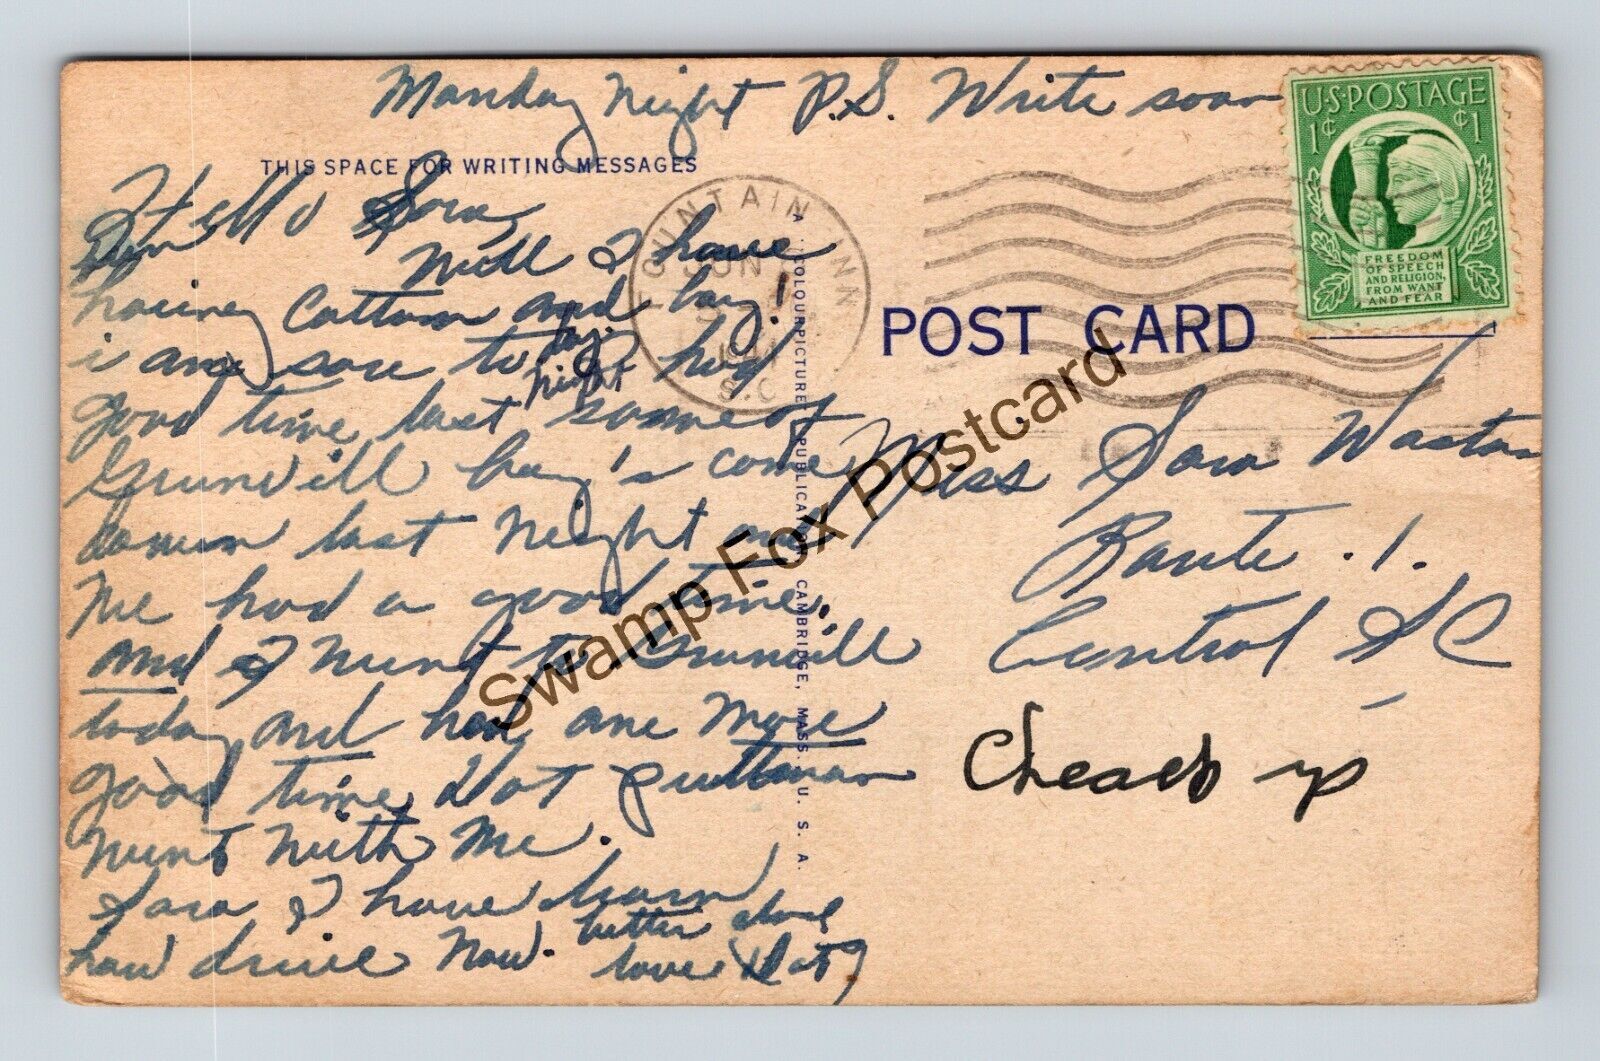 Monday Night P.S. Write soon
THIS SPACE FOR WRITING MESSAGES
Hello Sara
Well I have
hoeing Cottom and boy!
i am sore to day. had
night
good time last some of
Grunvill boy's come
down last night and
we had a good time.
and I went to Grunvill
today and had one more
good time Dot puttman
went with me.
Sara I have learn
how drive now. better close
love Dot
FOUNTAIN INN
JUN
S.C.
A "COLOURPICTURE" PUBLICATION CAMBRIDGE, MASS. U. S. A.
U.S. POSTAGE
1¢ ¢1
FREEDOM
OF SPEECH
AND RELIGION,
FROM WANT
AND FEAR
POST CARD
Miss Sara Waston
Route .1.
Central SC
Cheack up
Swamp Fox Postcard